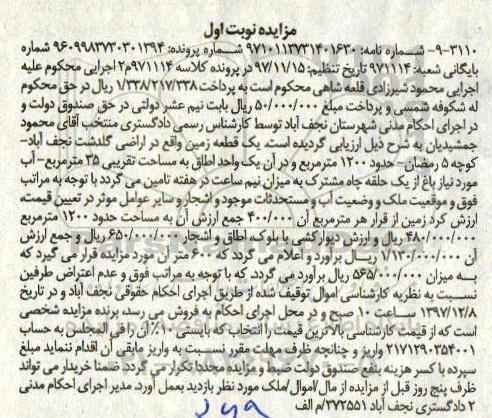 مزایده نوبت اول
۳۱۱۰-۹- شماره نامه: ۹۷۱۰۱۱۳۷۳۱۴۰۱۶۳۰ شماره پرونده: ۹۶۰۹۹۸۳۷۳۰۳۰۱۳۹۴ شماره
بایگانی شعبه: ۹۷۱۱۱۴ تاریخ تنظیم: ۹۷/۱۱/۱۵ در پرونده کلاسه ۹۷۱۱۱۴م۲ اجرایی محکوم علیه
اجرایی محمود شیرزادی قلعه شاهی محکوم است به پرداخت ۱/۳۳۸/۲۱۷/۳۳۸ ریال در حق محکوم
له شکوفه شمسی و پرداخت مبلغ ۵۰/۰۰۰/۰۰۰ ریال بابت نیم عشر دولتی در حق صندوق دولت و
در اجرای احکام مدنی شهرستان نجف آباد توسط کارشناس رسمی دادگستری منتخب آقای محمود
جمشیدیان به شرح ذیل ارزیابی گردیده است. یک قطعه زمین واقع در اراضی گلدشت نجف آباد-
کوچه ۵ رمضان- حدود ۱۲۰۰ مترمربع و در آن یک واحد اطاق به مساحت تقریبی ۳۵ مترمربع- آب
مورد نیاز باغ از یک حلقه چاه مشترک به میزان نیم ساعت در هفته تامین می گردد با توجه به مراتب
فوق و موقعیت ملک و وضعیت آب و مستحدثات موجود و اشجار و سایر عوامل موثر در تعیین قیمت،
ارزش کرد زمین از قرار هر مترمربع آن ۴۰۰/۰۰۰ جمع ارزش آن به مساحت حدود ۱۲۰۰ مترمربع
۴۸۰/۰۰۰/۰۰۰ ریال و ارزش دیوارکشی با بلوک، اطاق و اشجار ۶۵۰/۰۰۰/۰۰۰ ریال و جمع ارزش
آن ۱/۱۳۰/۰۰۰/۰۰۰ ریال برآورد و اعلام می گردد که ۶۰۰ متر آن مورد مزایده قرار می گیرد که
به میزان ۵۶۵/۰۰۰/۰۰۰ ریال برآورد می گردد، که با توجه به مراتب فوق و عدم اعتراض طرفین
نسبت به نظریه کارشناسی اموال توقیف شده از طریق اجرای احکام حقوقی نجف آباد و در تاریخ
۱۳۹۷/۱۲/۸ ساعت ۱۰ صبح و در محل اجرای احکام به فروش می رسد، برنده مزایده شخصی
است که از قیمت کارشناسی بالاترین قیمت را انتخاب که بایستی ۱۰٪ آن را فی المجلس به حساب
سپرده ۲۱۷۱۲۹۰۳۵۴۰۰۱ واریز و چنانچه ظرف مهلت مقرر نسبت به واریز مابقی آن اقدام ننماید مبلغ
سپرده با کسر هزینه بنفع صندوق دولت ضبط و مزایده مجددا تکرار می گردد. ضمنا خریدار می تواند
ظرف پنج روز قبل از مزایده از مال/اموال/ملک مورد نظر بازدید بعمل آورد. مدیر اجرای احکام مدنی
۲ دادگستری نجف آباد ۳۷۲۵۵۱/م الف